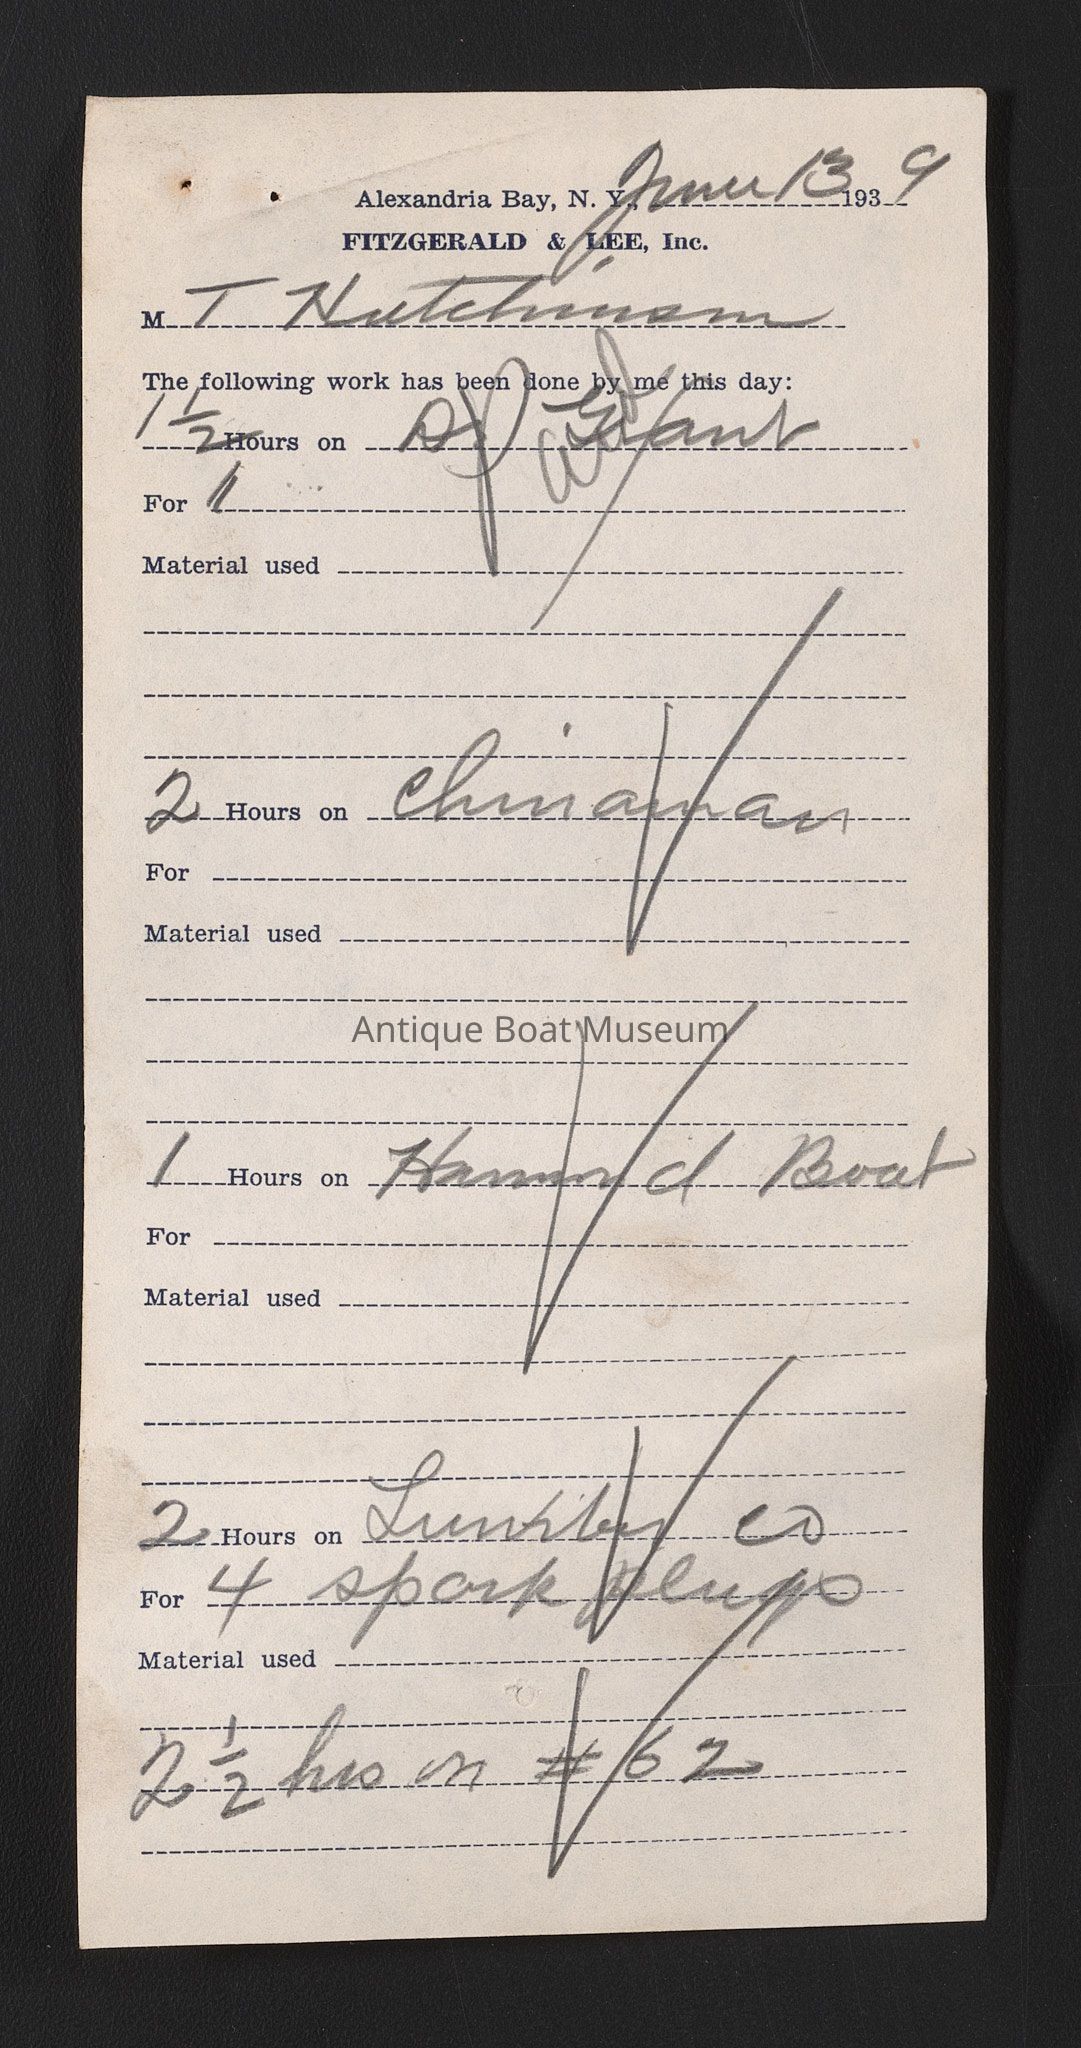 Alexandria Bay, N. Y., June 13 1939
FITZGERALD & LEE, Inc.
M T Hutchinson
The following work has been done by me this day:
1 1/2 Hours on Grant
For
Material used
2 Hours on Chinaman
For
Material used
Antique Boat Museum
1 Hours on Hammond Boat
For
Material used
2 Hours on Co
For 4 spark plugs
Material used
2 1/2 hrs on # 62